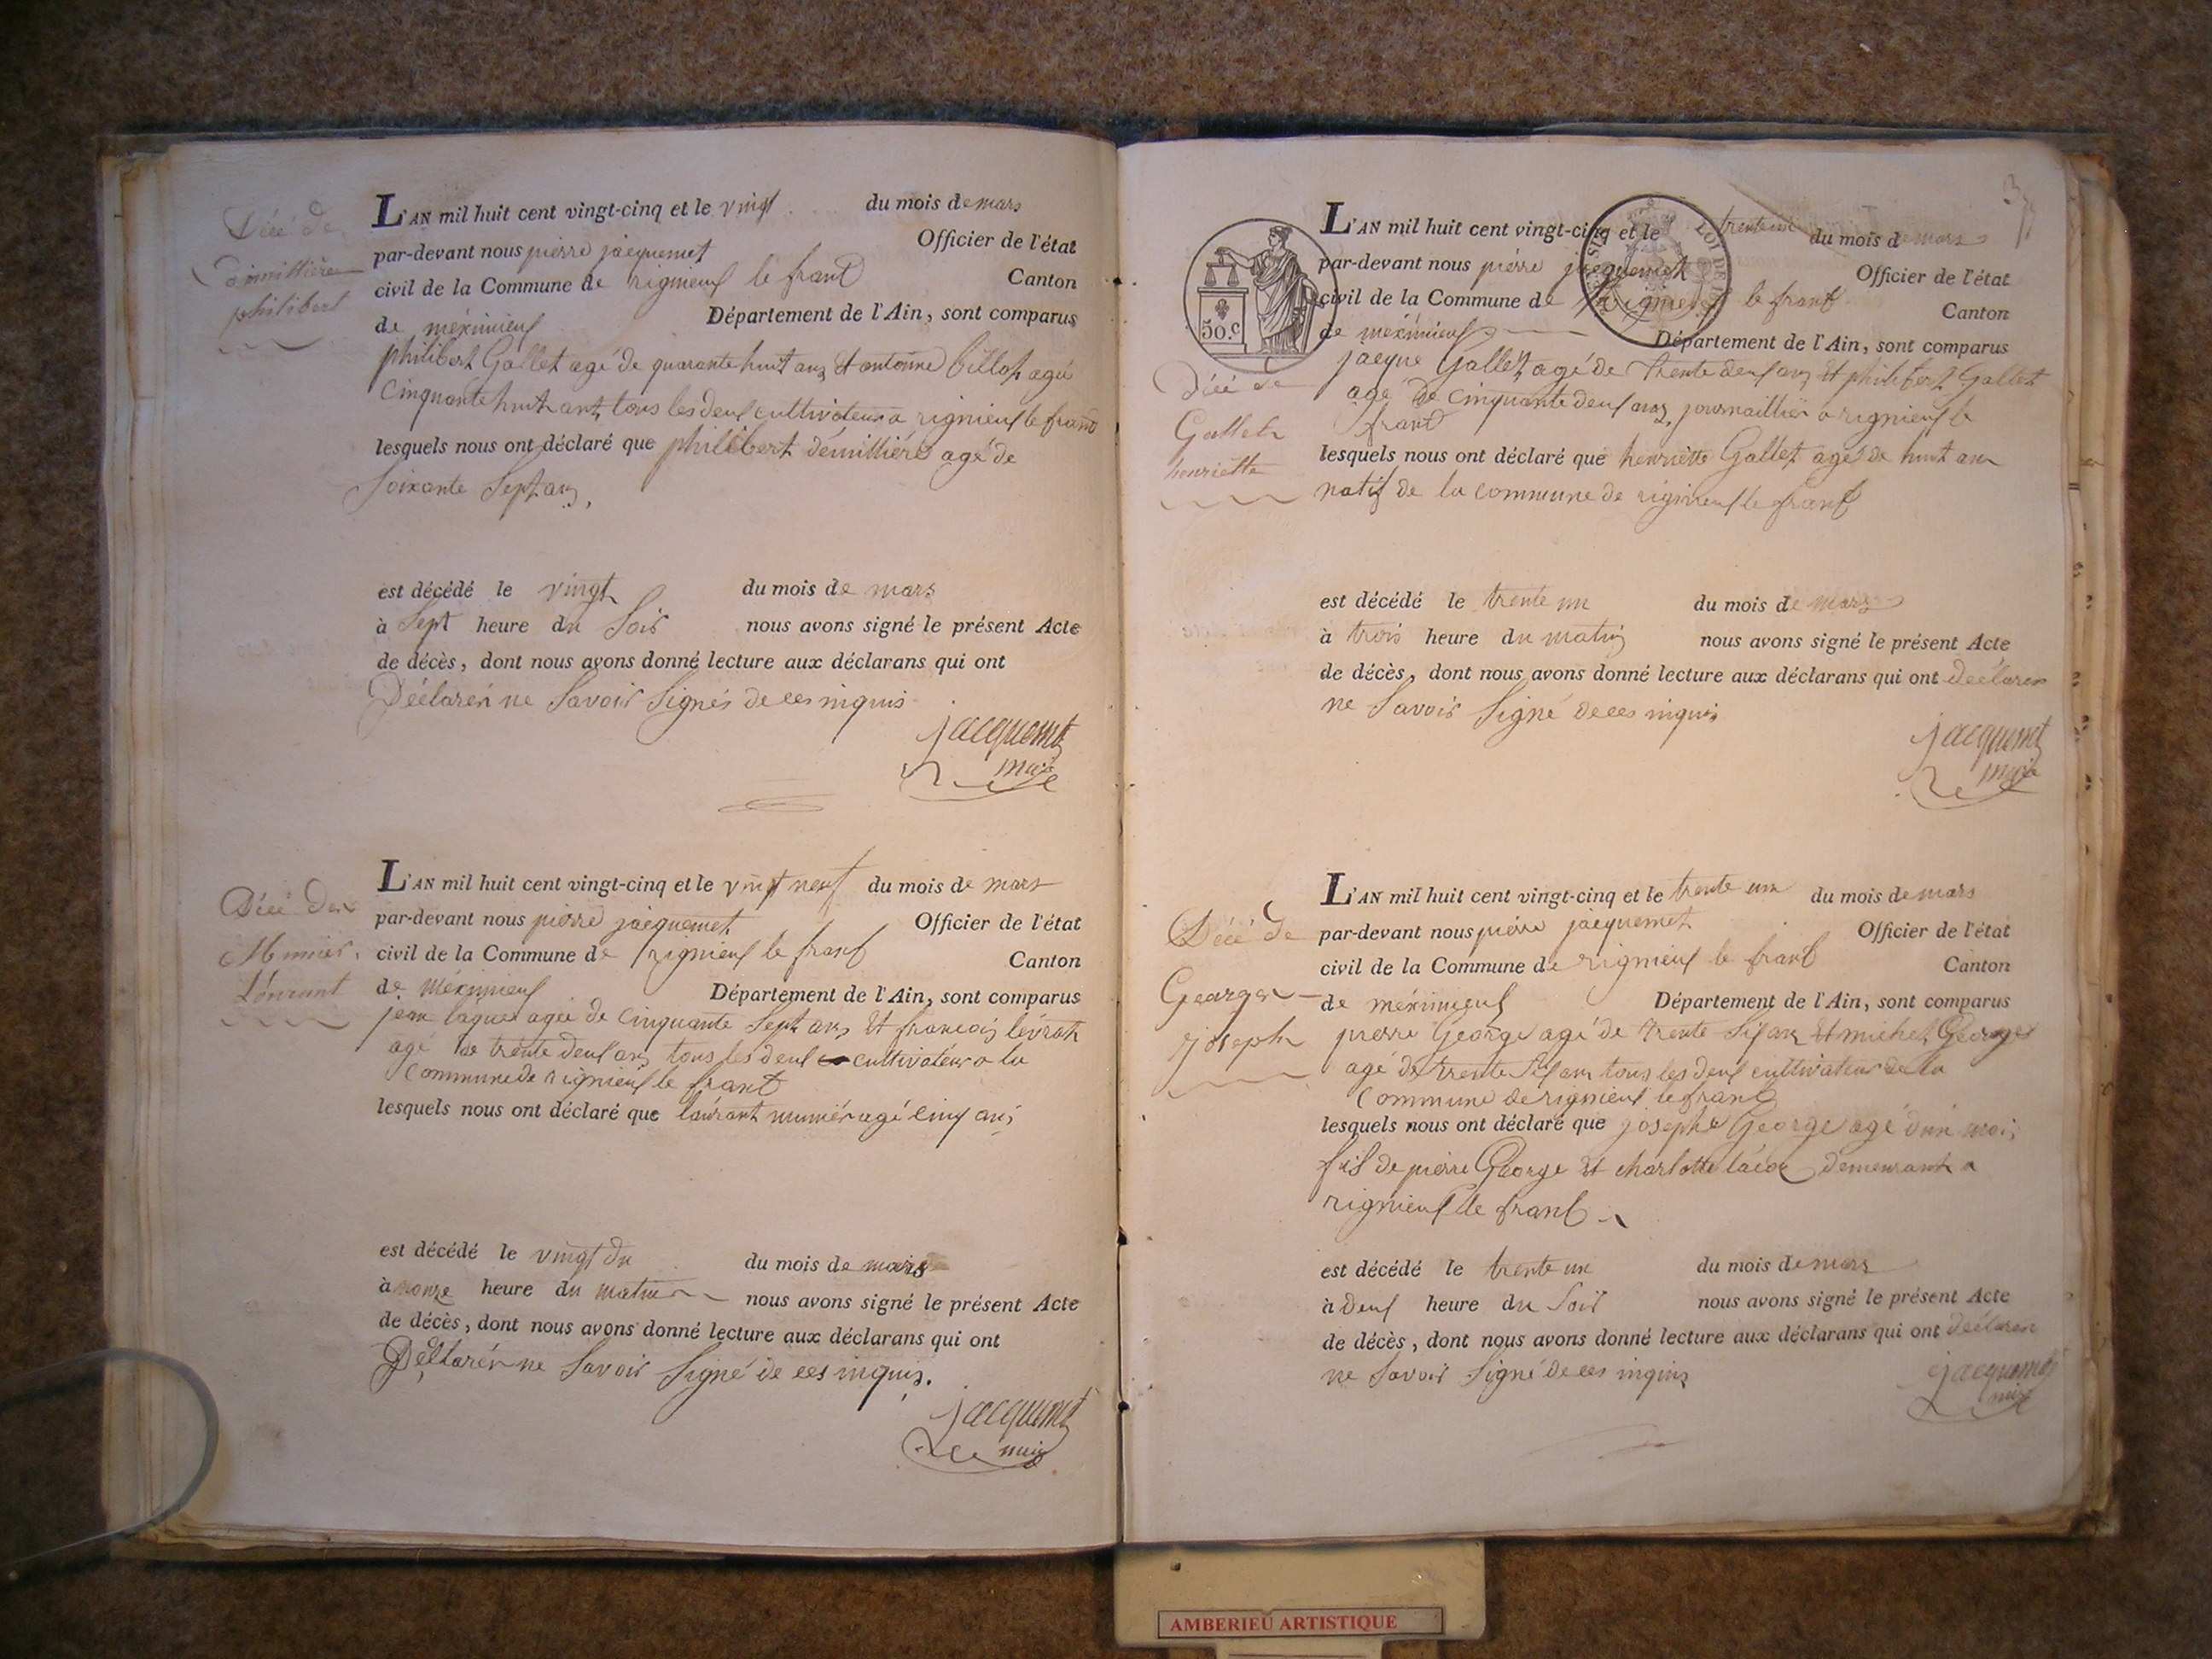 Décé de
démillière
philibert
L'AN mil huit cent vingt-cinq et le vingt du mois de mars
par-devant nous pierre jacquemet Officier de l'état
civil de la Commune de rignieuf le franc Canton
de méximieuf Département de l'Ain, sont comparus
philibert Gallet agé de quarante huit ans et antoine billot agé
Cinquante huit ans tous les deuf cultivateur a rignieuf le franc
lesquels nous ont déclaré que philibert démillière agé de
Soixante Sept ans,
est décédé le vingt du mois de mars
à Sept heure du Soir nous avons signé le présent Acte
de décès, dont nous avons donné lecture aux déclarans qui ont
Déclarér ne Savoir Signés de ces inquis
jacquemet
maire
Décé de
Munier
Lourant
L'AN mil huit cent vingt-cinq et le vingt neuf du mois de mars
par-devant nous pierre jacquemet Officier de l'état
civil de la Commune de rignieuf le franc Canton
de méximieuf Département de l'Ain, sont comparus
jean agée de cinquante Sept ans et francois lévrat
agé de trente deuf ans tous les deuf cultivateur a la
Commune de rignieuf le franc
lesquels nous ont déclaré que laurant munier agé cinq ans
est décédé le vingt du mois de mars
à heure du matin nous avons signé le présent Acte
de décès, dont nous avons donné lecture aux déclarans qui ont
Déclarér ne Savoir Signé de ces inquis.
jacquemet
maire
3
50.c
LOI DE
L'AN mil huit cent vingt-cinq et le trente un du mois de mars
par-devant nous pierre jacquemet Officier de l'état
civil de la Commune de rignieuf le franc Canton
de méximieuf Département de l'Ain, sont comparus
Décé de
Gallet
henriette
jacque Gallet agé de trente deuf ans et philibert Gallet
agé de cinquante deuf ans, journaillier a rignieuf le
franc
lesquels nous ont déclaré que henriette Gallet agé de huit ans
natif de la commune de rignieuf le franc
est décédé le trente un du mois de mars
à trois heure du matin nous avons signé le présent Acte
de décès, dont nous avons donné lecture aux déclarans qui ont déclarer
ne Savoir Signé de ces inquis
jacquemet
maire
Décé de
George
joseph
L'AN mil huit cent vingt-cinq et le trente un du mois de mars
par-devant nous pierre jacquemet Officier de l'état
civil de la Commune de rignieuf le franc Canton
de méximieuf Département de l'Ain, sont comparus
pierre George agé de trente Sif ans et michel George
agé de trente Sif ans tous les deuf cultivateur de la
Commune de rignieuf le franc
lesquels nous ont déclaré que joseph George agé d'un mois
fils de pierre George et charlotte demeurant a
rignieuf le franc
est décédé le trente un du mois de mars
à deuf heure du Soir nous avons signé le présent Acte
de décès, dont nous avons donné lecture aux déclarans qui ont déclarer
ne Savoir Signé de ces inquis
jacquemet
maire
AMBERIEU ARTISTIQUE